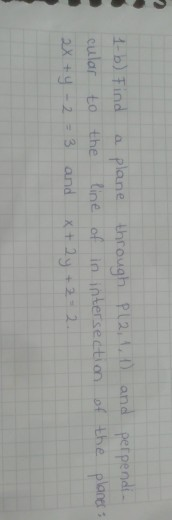 1-b) Find a plane through P(2,1,1) and perpendi-
cular to the line of in intersection of the planes:
2x + y - z = 3 and x + 2y + z = 2.